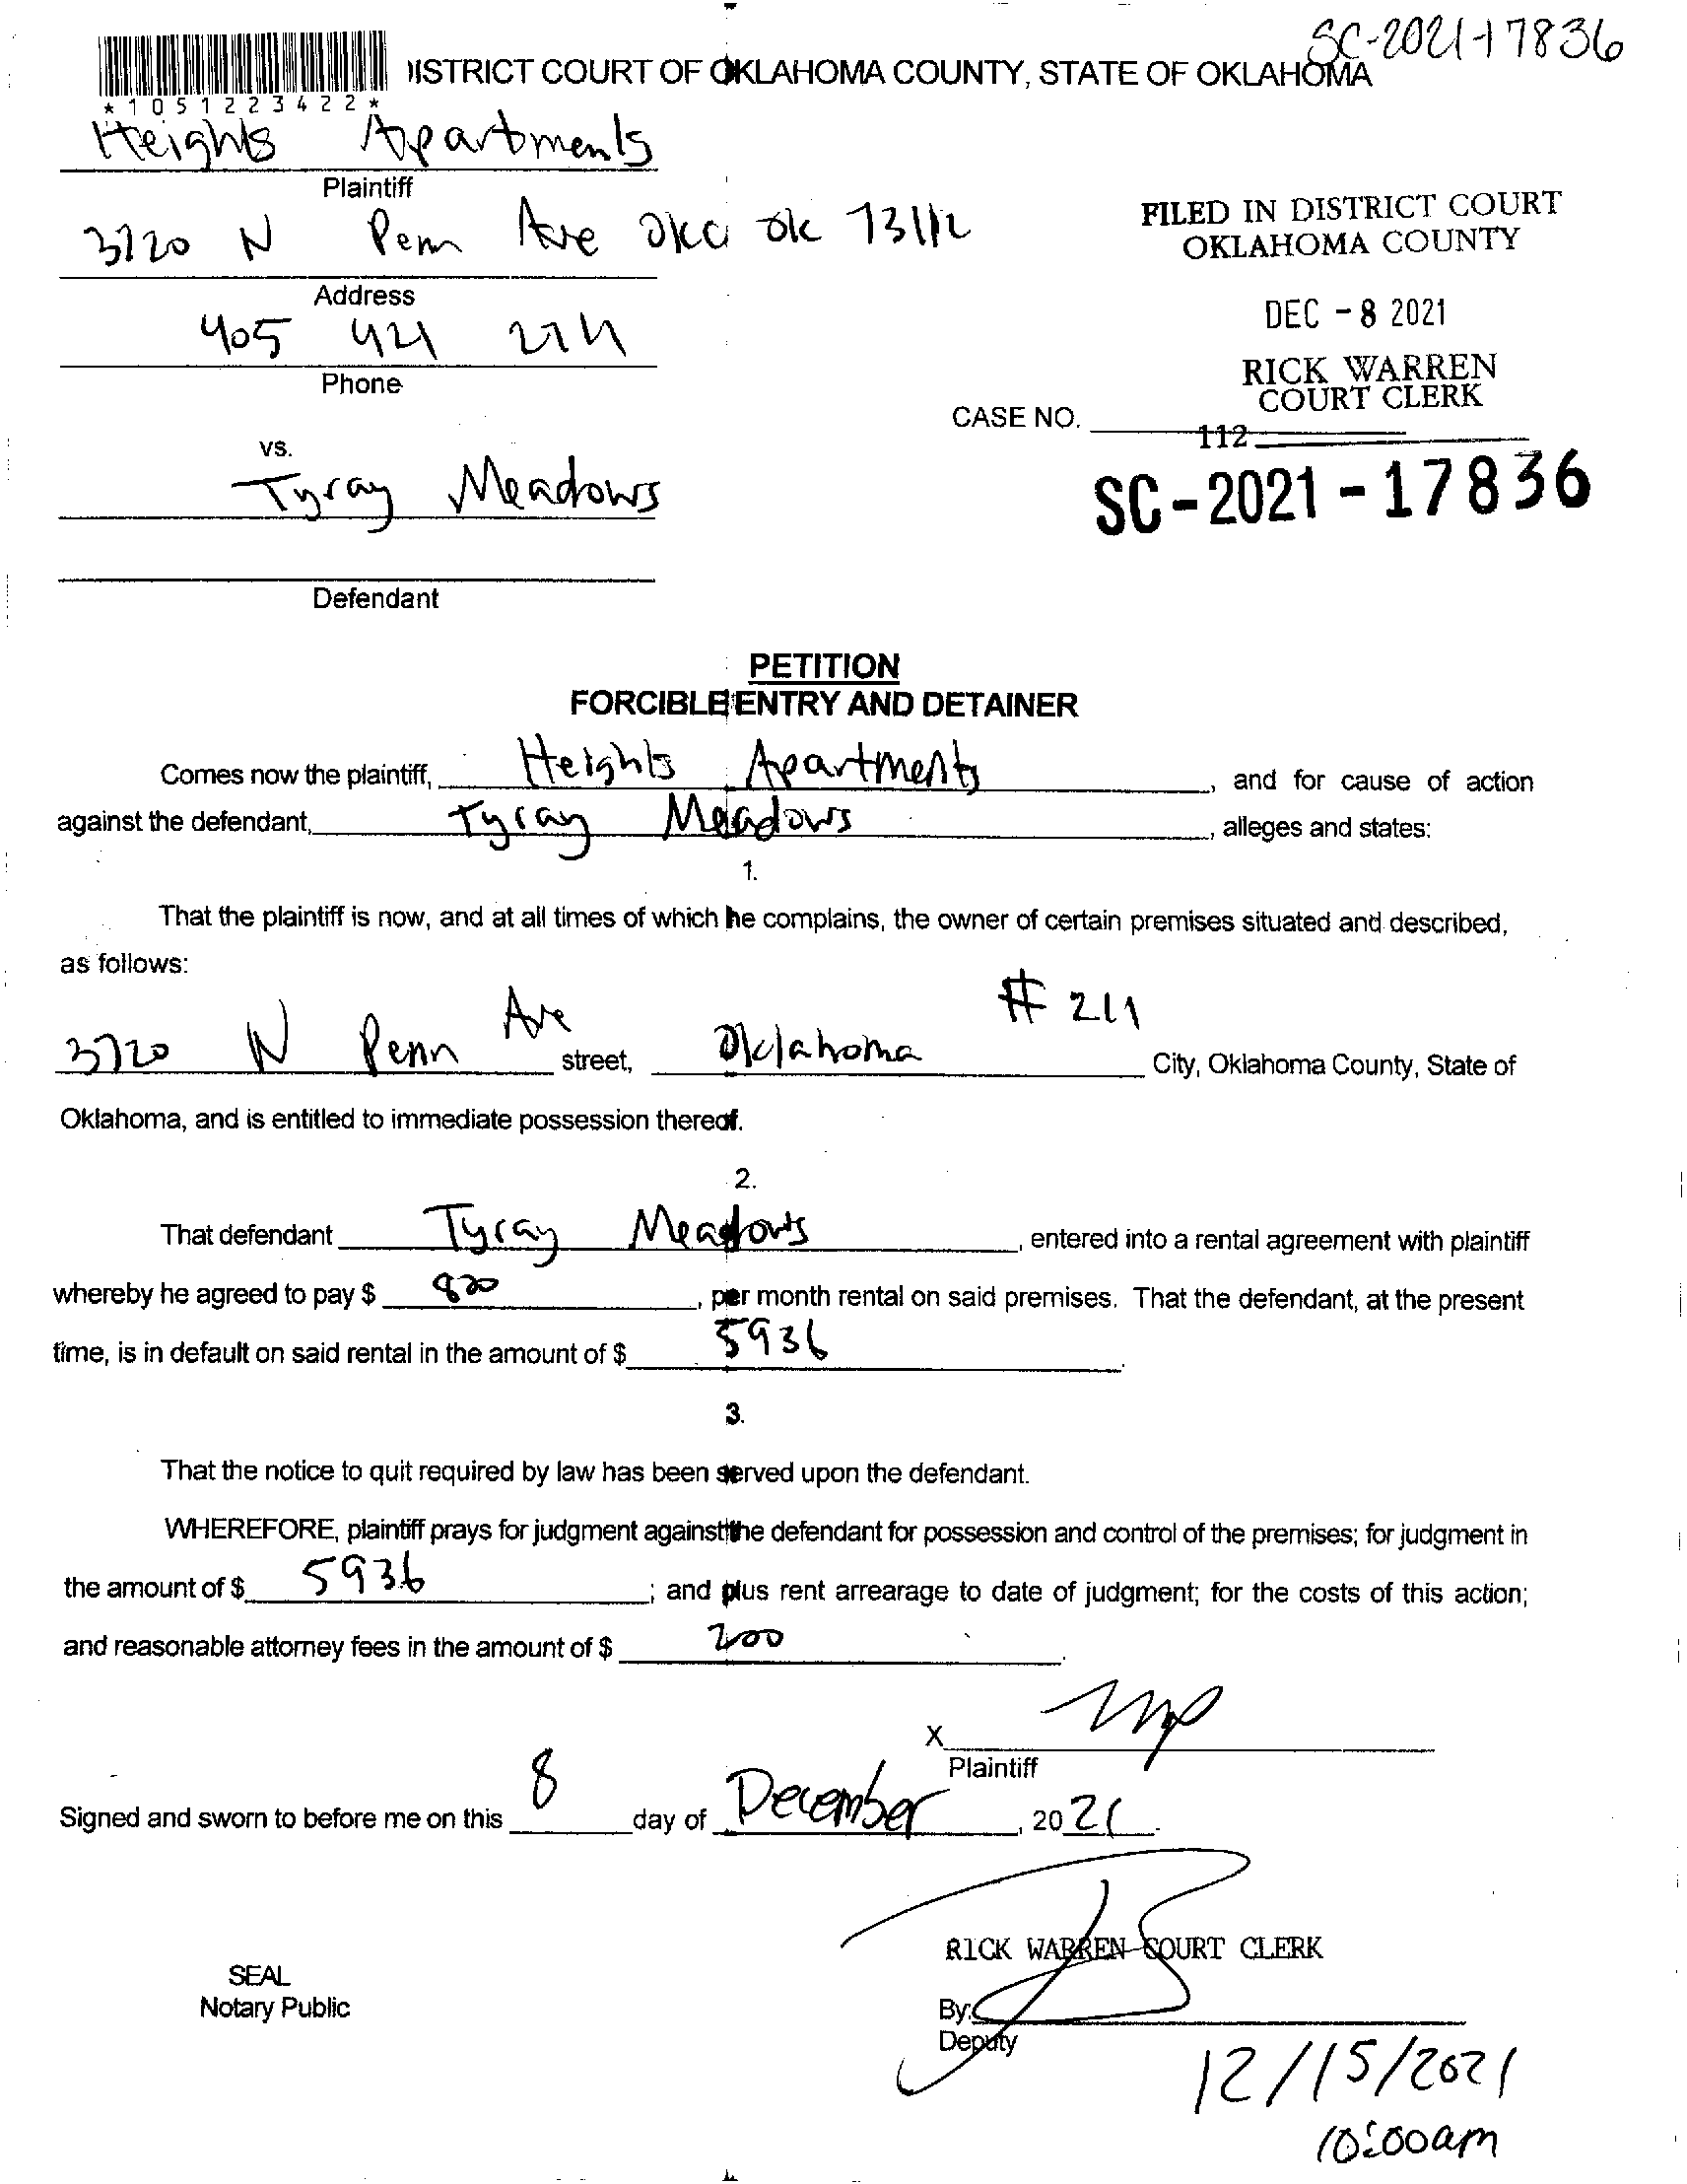 SC-2021-17836
DISTRICT COURT OF OKLAHOMA COUNTY, STATE OF OKLAHOMA
*1051223422*
Heights Apartments
Plaintiff
3720 N Penn Ave OKC OK 73112
Address
405 421
Phone
FILED IN DISTRICT COURT
OKLAHOMA COUNTY
DEC - 8 2021
RICK WARREN
COURT CLERK
CASE NO.
112
SC-2021-17836
vs.
Tyray Meadows
Defendant
PETITION
FORCIBLE ENTRY AND DETAINER
Comes now the plaintiff, Heights Apartments, and for cause of action
against the defendant, Tyray Meadows, alleges and states:
1.
That the plaintiff is now, and at all times of which he complains, the owner of certain premises situated and described,
as follows:
# 211
3720 N Penn Ave street, Oklahoma City, Oklahoma County, State of
Oklahoma, and is entitled to immediate possession thereof.
2.
That defendant Tyray Meadows, entered into a rental agreement with plaintiff
whereby he agreed to pay $ 820, per month rental on said premises. That the defendant, at the present
time, is in default on said rental in the amount of $ 5936.
3.
That the notice to quit required by law has been served upon the defendant.
WHEREFORE, plaintiff prays for judgment against the defendant for possession and control of the premises; for judgment in
the amount of $ 5936; and plus rent arrearage to date of judgment; for the costs of this action;
and reasonable attorney fees in the amount of $ 200.
X
Plaintiff
Signed and sworn to before me on this 8 day of December, 2021.
RICK WARREN COURT CLERK
SEAL
Notary Public
By:
Deputy
12/15/2021
10:00am